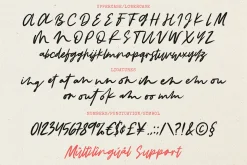 UPPERCASE/LOWERCASE
A B C D E F G H I J K L M
N O P Q R S T U V W X Y Z
a b c d e f g h i j k l m n o p q r s t u v w x y z
LIGATURES
ing et at an un on ch en em ou
or out of ah oo mm
NUMERALS/PUNCTUATION/SYMBOL
0123456789%€$¢£¥.,:;/\?!&©§
Multilingual Support